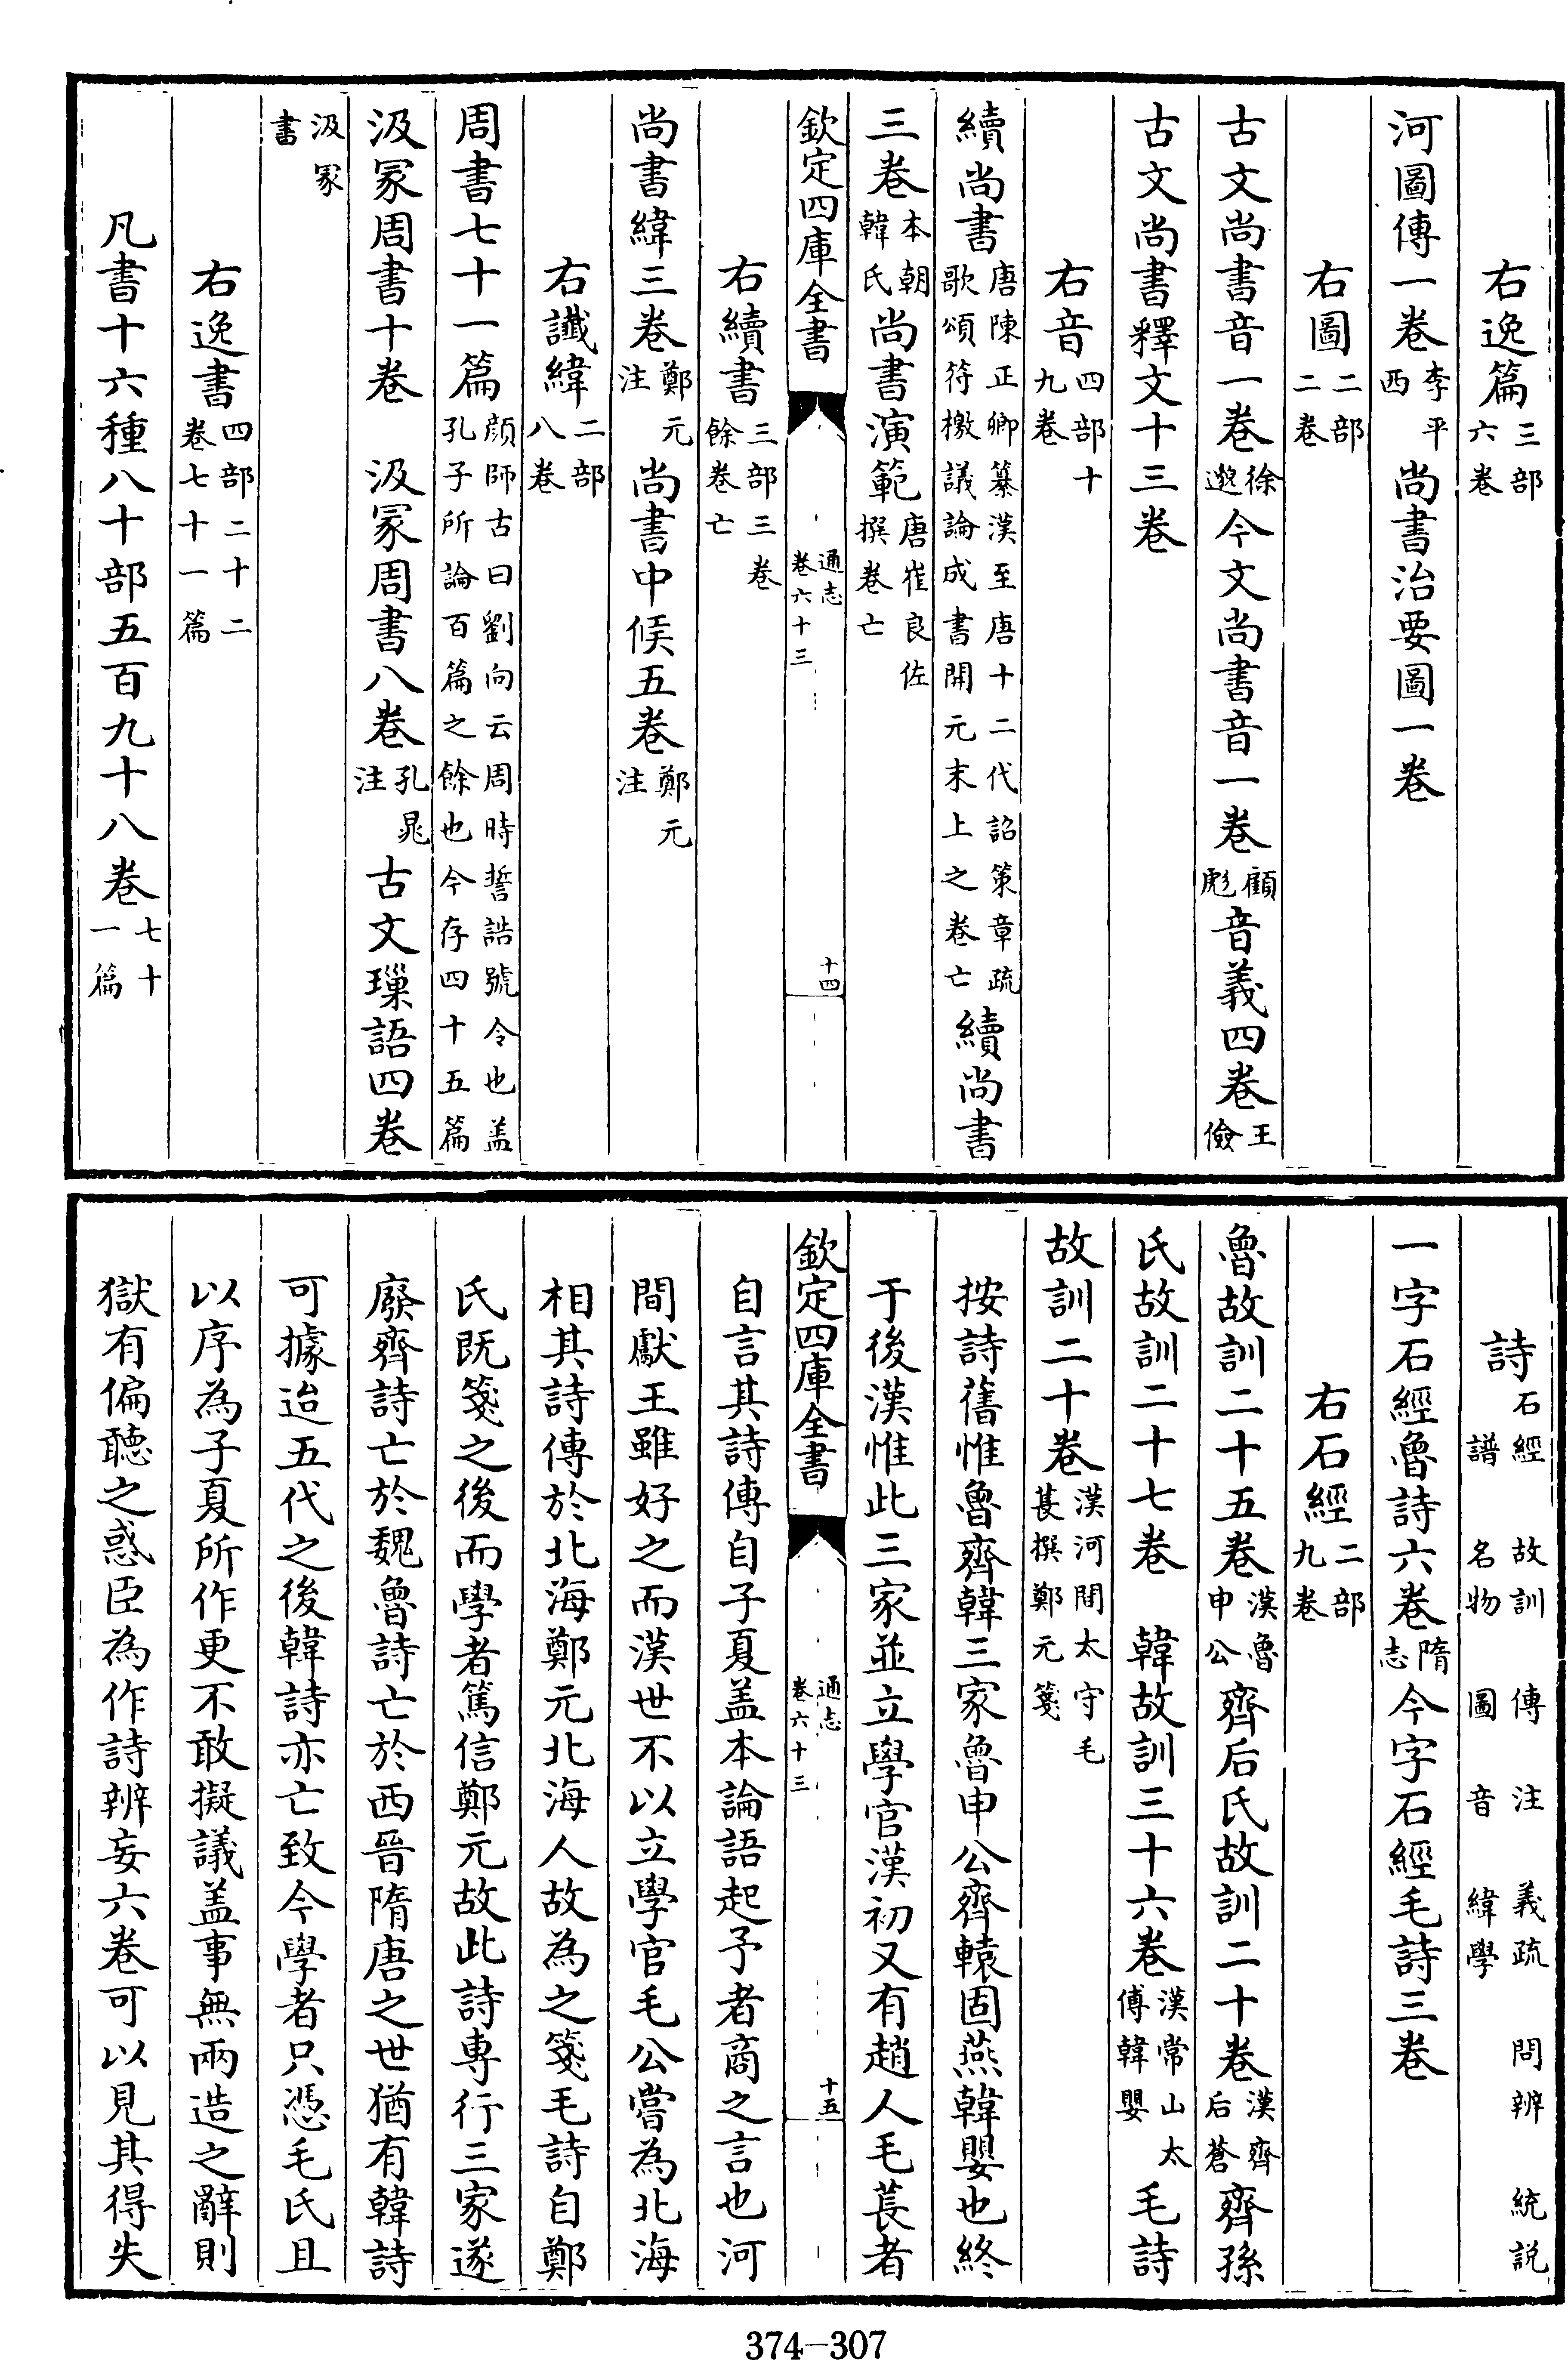 右逸篇三部六卷
河圖傳一卷李平西尚書治要圖一卷
右圖二部二卷
古文尚書音一卷徐邈今文尚書音一卷顧彪音義四卷王儉
古文尚書釋文十三卷
右音四部十九卷
續尚書唐陳正卿纂漢至唐十二代詔策章疏歌頌符檄議論成書開元末上之卷亡續尚書
三卷本朝韓氏尚書演範唐崔良佐撰卷亡
欽定四庫全書 通志卷六十三 十四
右續書三部三卷餘卷亡
尚書緯三卷鄭元注尚書中候五卷鄭元注
右讖緯二部八卷
周書七十一篇顔師古曰劉向云周時誓誥號令也盖孔子所論百篇之餘也今存四十五篇
汲冢周書十卷 汲冢周書八卷孔晁注古文璅語四卷
汲冢書
右逸書四部二十二卷七十一篇
凡書十六種八十部五百九十八卷七十一篇
詩石經 故訓 傳 注 義疏 問辨 統説 譜 名物 圖 音 緯學
一字石經魯詩六卷隋志今字石經毛詩三卷
右石經二部九卷
魯故訓二十五卷漢魯申公齊后氏故訓二十卷漢齊后蒼齊孫
氏故訓二十七卷 韓故訓三十六卷漢常山太傅韓嬰毛詩
故訓二十卷漢河間太守毛萇撰鄭元箋
按詩舊惟魯齊韓三家魯申公齊轅固燕韓嬰也終
于後漢惟此三家並立學官漢初又有趙人毛萇者
欽定四庫全書 通志卷六十三 十五
自言其詩傳自子夏盖本論語起予者商之言也河
間獻王雖好之而漢世不以立學官毛公嘗為北海
相其詩傳於北海鄭元北海人故為之箋毛詩自鄭
氏既箋之後而學者篤信鄭元故此詩專行三家遂
廢齊詩亡於魏魯詩亡於西晉隋唐之世猶有韓詩
可據迨五代之後韓詩亦亡致今學者只憑毛氏且
以序為子夏所作更不敢擬議盖事無兩造之辭則
獄有偏聽之惑臣為作詩辨妄六卷可以見其得失
374-307